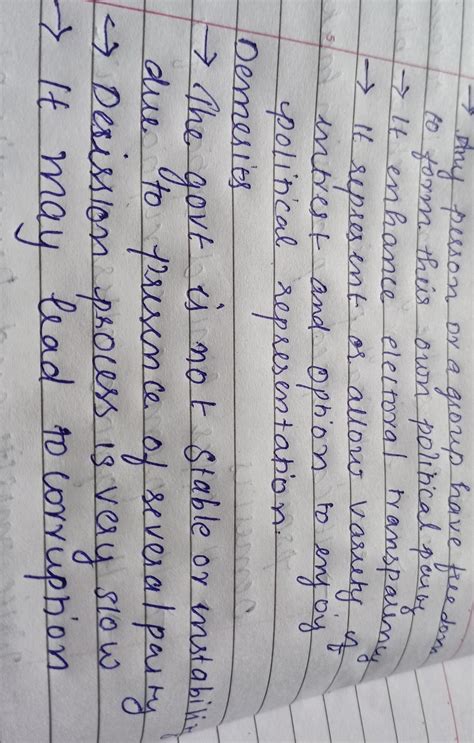 → Any person or a group have freedom
to form their own political party
→ It enhance electoral transparency
→ It represent or allow variety of
intrest and option to enjoy
political representation.
Demerits
→ The govt is not stable or instability
due to presence of several party
→ Desission process is very slow
→ It may lead to corruption